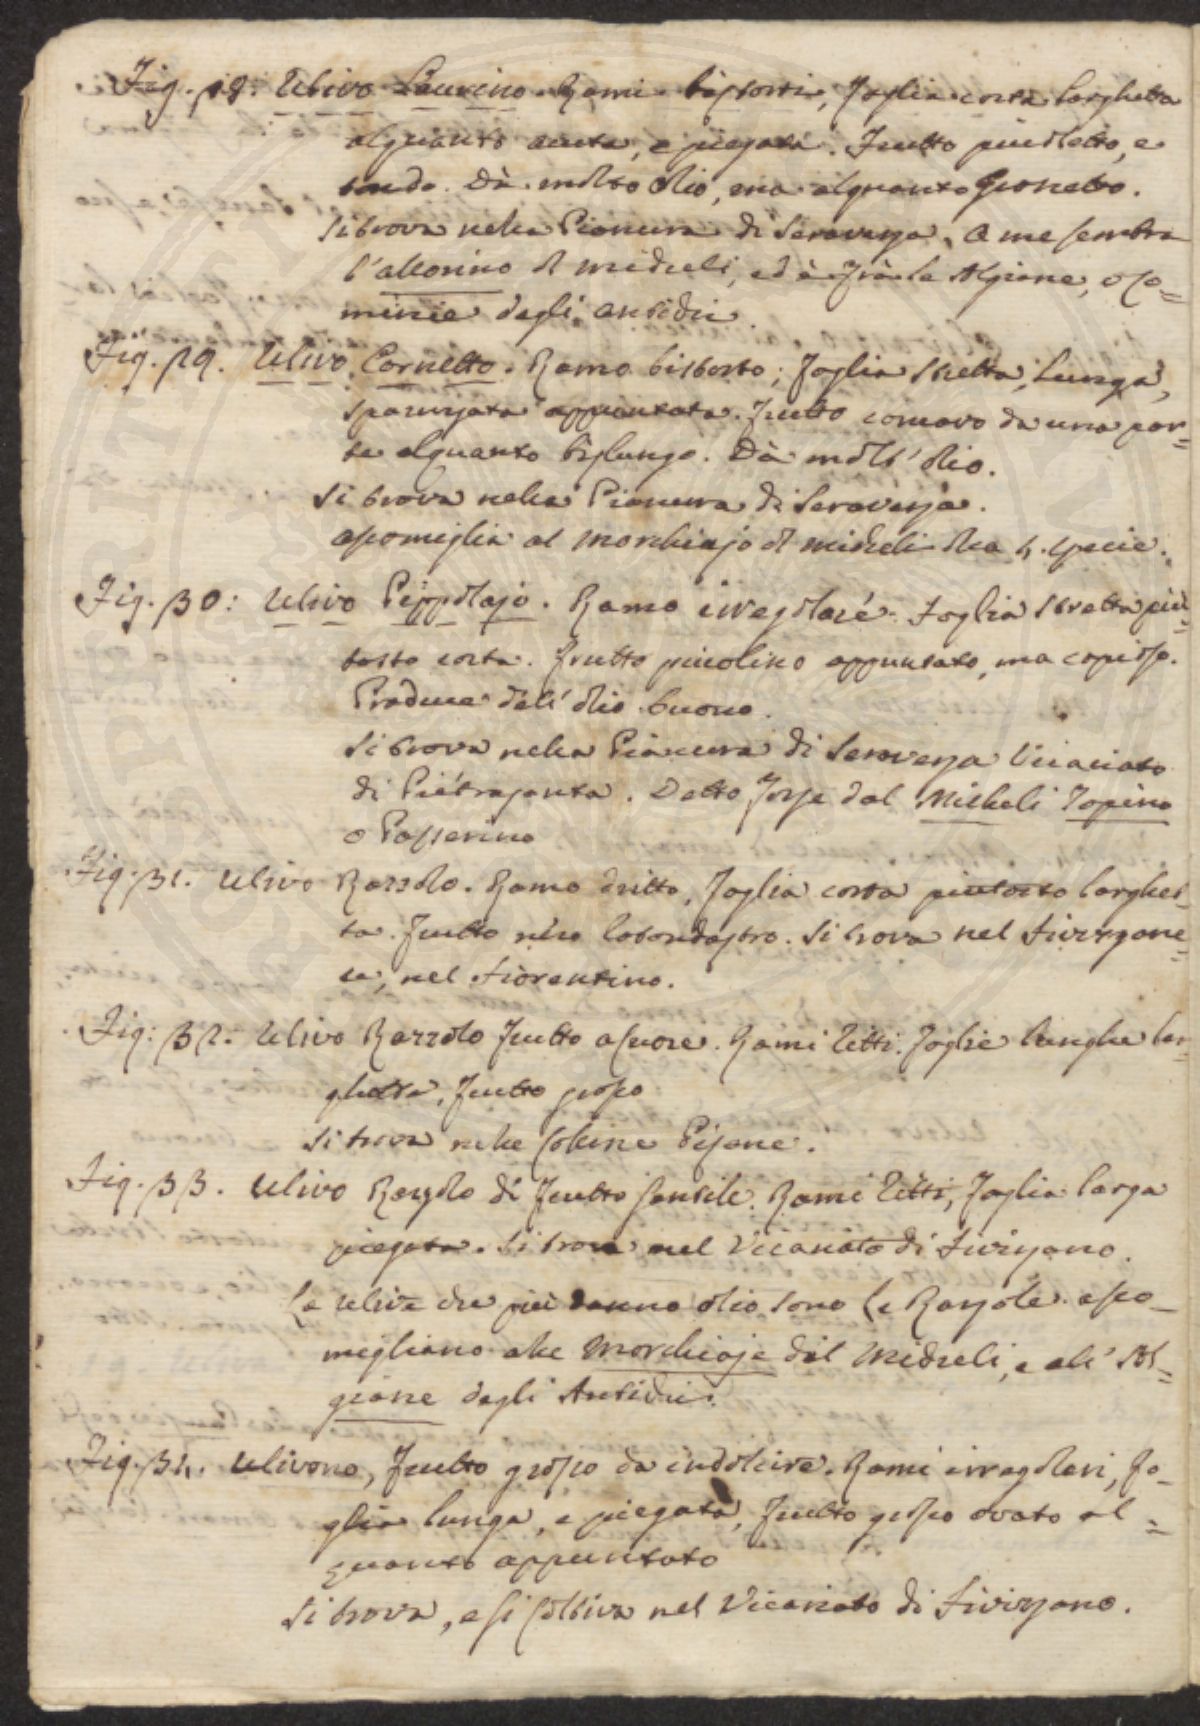 Fig. 28. Ulivo Laurino. Rami bistorti, foglia corta larghetta
alquanto acuta, e piegata. Frutto piccoletto, e
tondo. Dà molto olio, ma alquanto grossetto.
Si trova nella Pianura di Seravezza. A me sembra
l'allorino di Micheli, ed è frà le Algiane, o Co=
minie degli antichi
Fig. 29. Ulivo Cornetto. Ramo bistorto; foglia stretta, lunga,
appuntata. Frutto concavo da una par=
te alquanto bislungo. Dà molt' olio.
Si trova nella Pianura di Seravezza.
asomiglia al Morchiajo di Micheli dla 4. specie.
Fig. 30: Ulivo Pippolajo. Ramo irregolare. Foglia stretta più=
tosto corta. frutto piccolino appuntato, ma copioso.
Produce dell' olio buono.
Si trova nella Pianura di Seravezza Vicariato
di Pietrasanta. Detto forse dal Micheli Topino
o Passerino
Fig. 31. Ulivo Razzolo. Ramo dritto, foglia corta piutosto larghet=
ta. Frutto nero rotondastro. Si trova nel Fivizzane=
se, nel Fiorentino.
Fig: 32. Ulivo Razzolo frutto a cuore. Rami ritti. foglie lunghe lar
ghette, frutto grosso
Si trova nelle Colline Pisane.
Fig. 33. Ulivo Razzolo di frutto gentile. Rami ritti, foglia larga
piegata. Si trova nel Vicariato di Fivizzano.
Le ulive che più danno olio sono le Razzole. aso=
migliano alle Morchiaje del Micheli, e all' Al=
giane degli Antichi.
Fig. 34. Ulivone, frutto grosso da indolcire. Rami irregolari, fo=
glia lunga, e piegata, frutto grosso ovato al=
quanto appuntato
Si trova, e si coltiva nel Vicariato di Fivizzano.